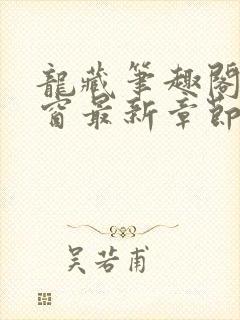 龍藏筆趣閣
窗最新章節
吴若甫